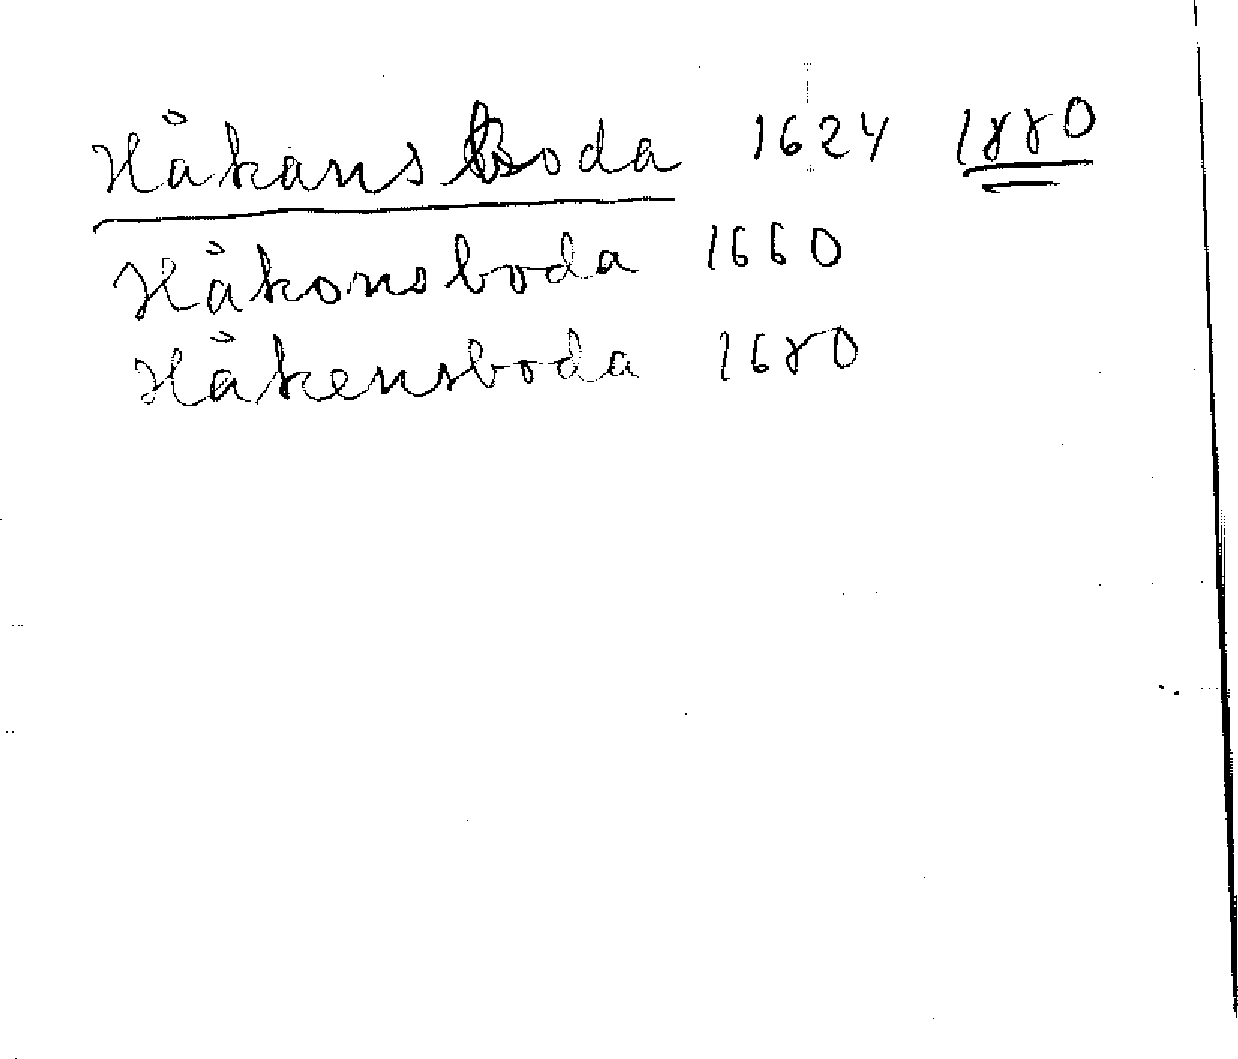 Håkansboda 1624 1880
Håkonsboda 1660
Håkensboda 1680